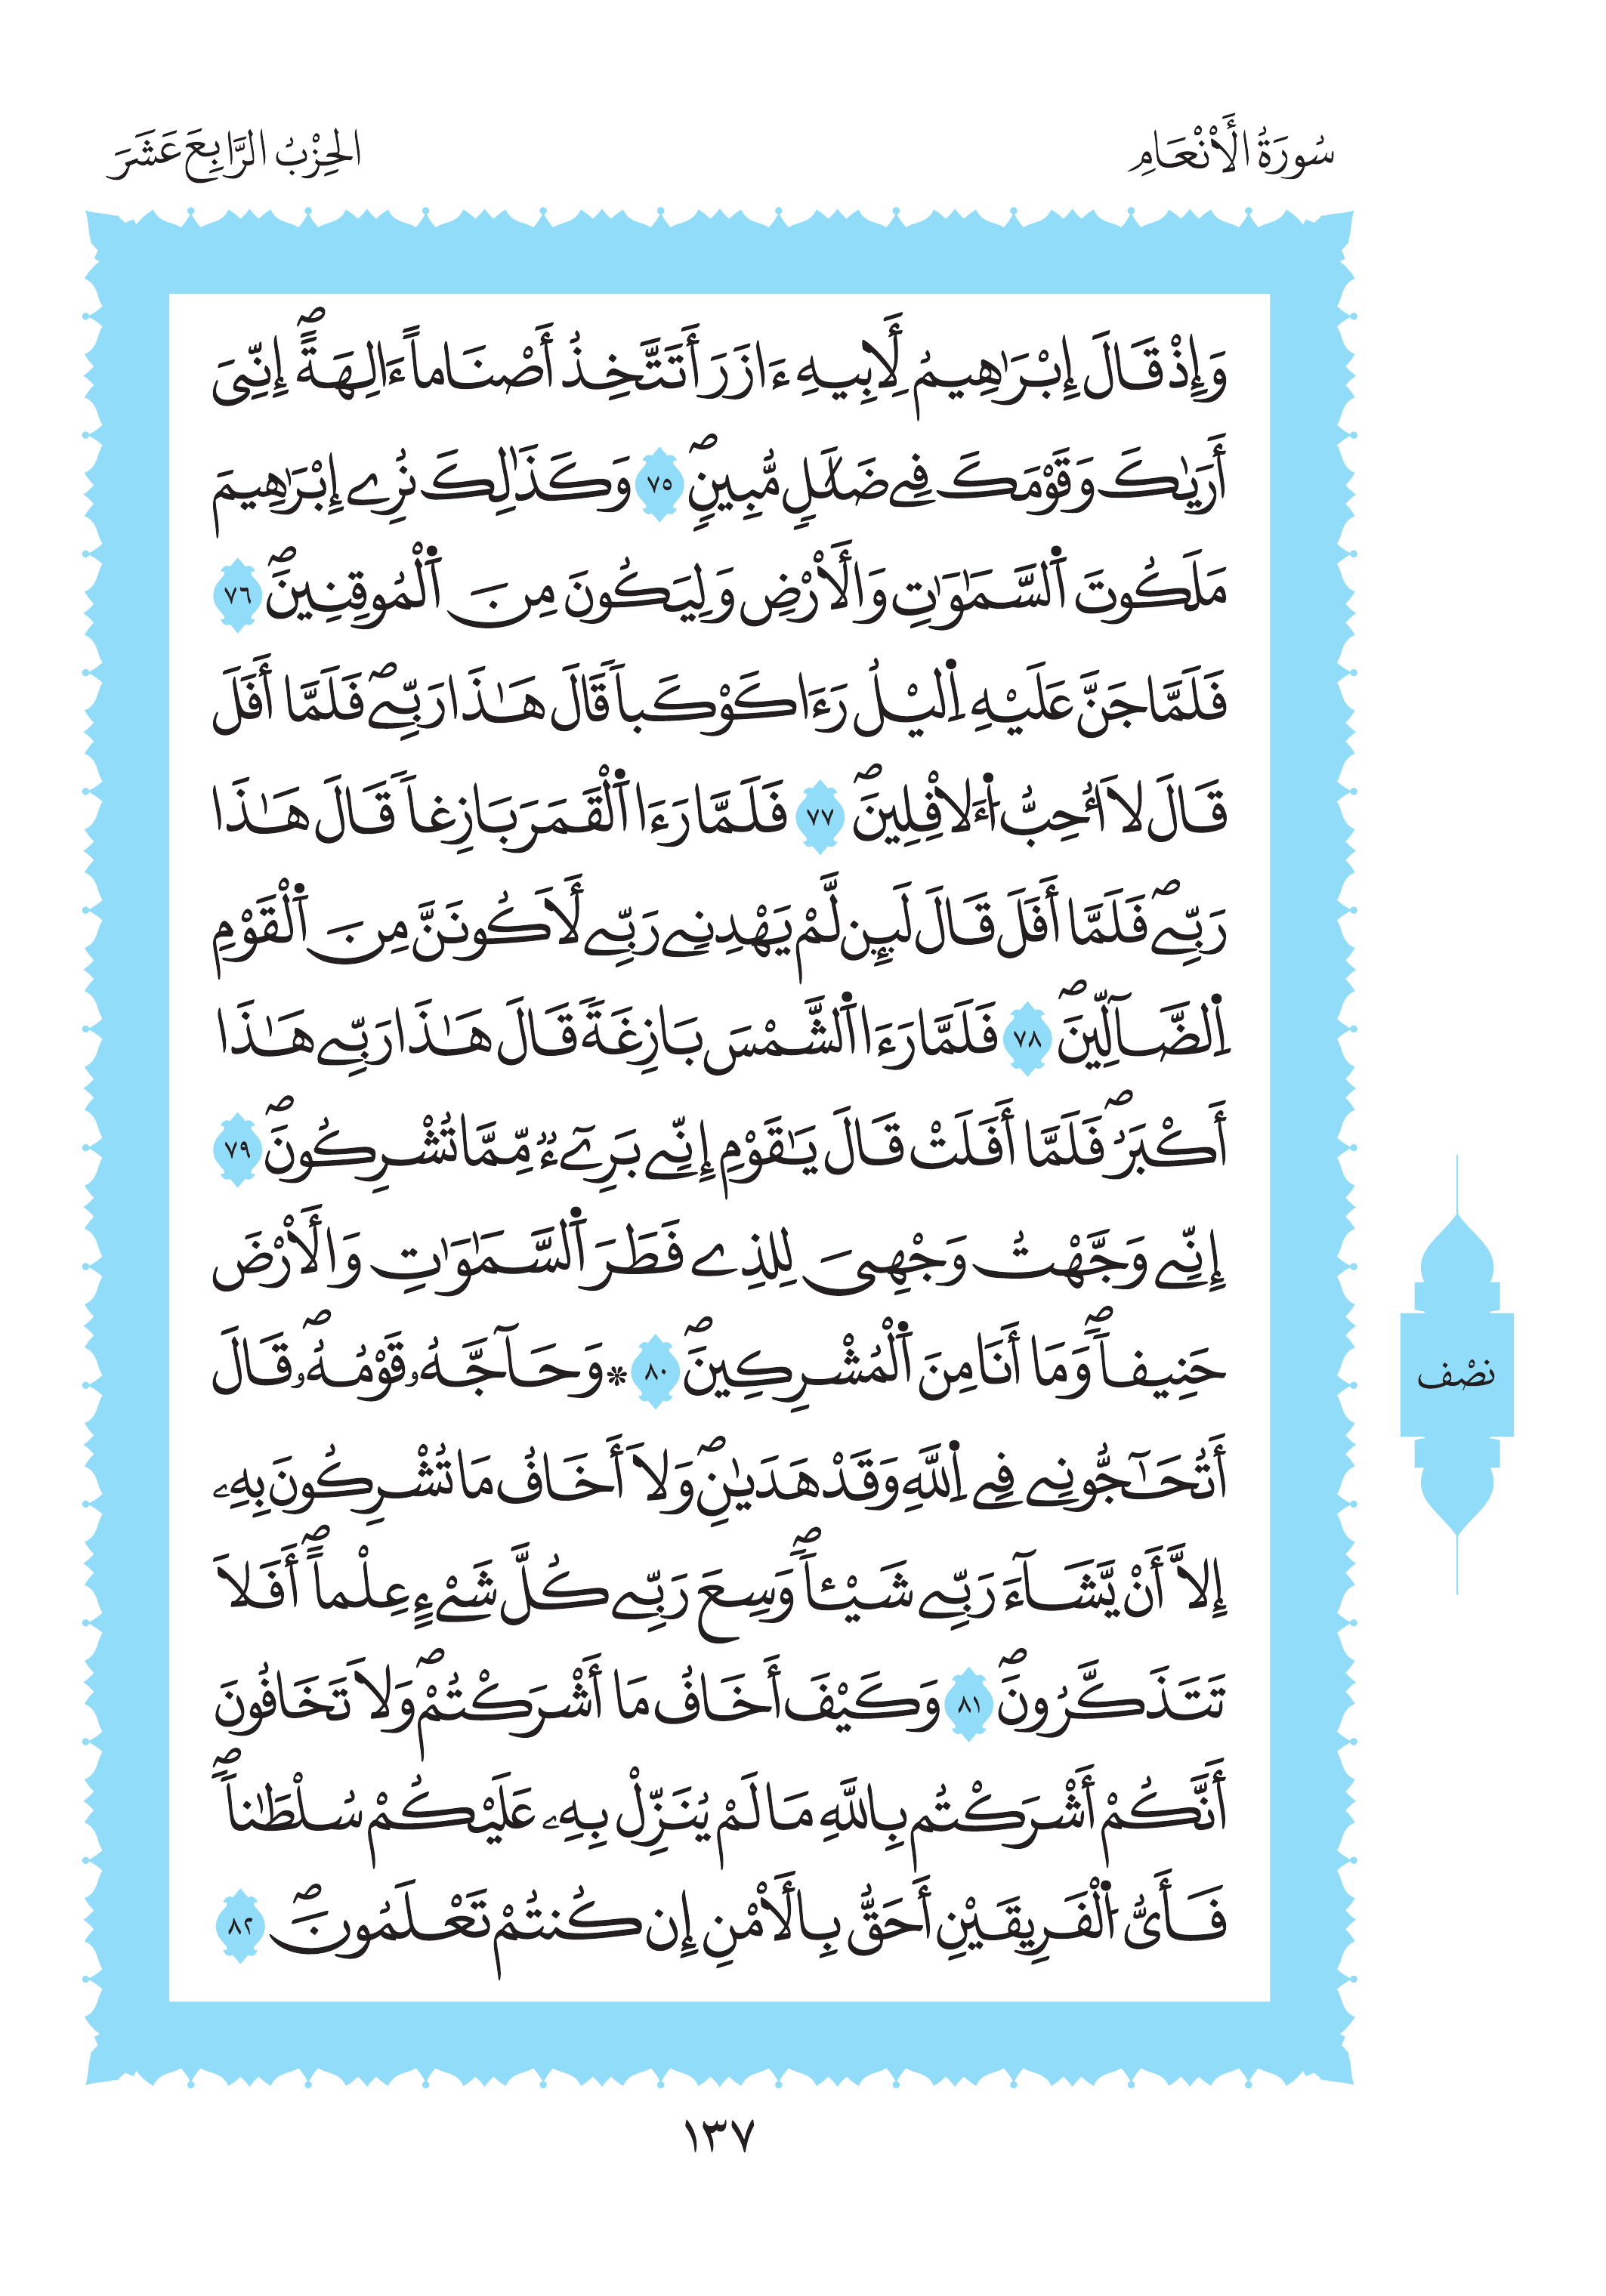 سُورَةُ الْأَنْعَامِ
الحِزْبُ الرَّابِعَ عَشَرَ
وَإِذْ قَالَ إِبْرَٰهِيمُ لِأَبِيهِ ءَازَرَ أَتَتَّخِذُ أَصْنَاماً ءَالِهَةًۖ إِنِّيَ
أَرَىٰكَ وَقَوْمَكَ فِے ضَلَٰلٖ مُّبِينٖۖ ٧٥ وَكَذَٰلِكَ نُرِے إِبْرَٰهِيمَ
مَلَكُوتَ اَ۬لسَّمَٰوَٰتِ وَالْأَرْضِ وَلِيَكُونَ مِنَ اَ۬لْمُوقِنِينَۖ ٧٦
فَلَمَّا جَنَّ عَلَيْهِ اِ۬ليْلُ رَءَا كَوْكَباٗ قَالَ هَٰذَا رَبِّےۖ فَلَمَّا أَفَلَ
قَالَ لَا أُحِبُّ اُ۬لَافِلِينَۖ ٧٧ فَلَمَّا رَءَا اَ۬لْقَمَرَ بَازِغاٗ قَالَ هَٰذَا
رَبِّےۖ فَلَمَّا أَفَلَ قَالَ لَئِن لَّمْ يَهْدِنِے رَبِّے لَأَكُونَنَّ مِنَ اَ۬لْقَوْمِ
اِ۬لضَّآلِّينَۖ ٧٨ فَلَمَّا رَءَا اَ۬لشَّمْسَ بَازِغَةٗ قَالَ هَٰذَا رَبِّے هَٰذَا
أَكْبَرُۖ فَلَمَّا أَفَلَتْ قَالَ يَٰقَوْمِ إِنِّے بَرِےٓءٞ مِّمَّا تُشْرِكُونَۖ ٧٩
إِنِّے وَجَّهْتُ وَجْهِيَ لِلذِے فَطَرَ اَ۬لسَّمَٰوَٰتِ وَالْأَرْضَ
حَنِيفاٗۖ وَمَا أَنَا مِنَ اَ۬لْمُشْرِكِينَۖ ٨٠ * وَحَآجَّهُۥ قَوْمُهُۥۖ قَالَ
أَتُحَٰٓجُّونِے فِے اِ۬للَّهِ وَقَدْ هَدَىٰنِۖ وَلَا أَخَافُ مَا تُشْرِكُونَ بِهِۦ
إِلَّا أَنْ يَّشَآءَ رَبِّے شَيْـٔاٗۖ وَسِعَ رَبِّے كُلَّ شَےْءٍ عِلْماًۖ أَفَلَا
تَتَذَكَّرُونَۖ ٨١ وَكَيْفَ أَخَافُ مَا أَشْرَكْتُمْۖ وَلَا تَخَافُونَ
أَنَّكُمْ أَشْرَكْتُم بِاللَّهِ مَا لَمْ يُنَزِّلْ بِهِۦ عَلَيْكُمْ سُلْطَٰناٗۖ
فَأَيُّ اُ۬لْفَرِيقَيْنِ أَحَقُّ بِالْأَمْنِ إِن كُنتُمْ تَعْلَمُونَۖ ٨٢
نِصْف
١٣٧